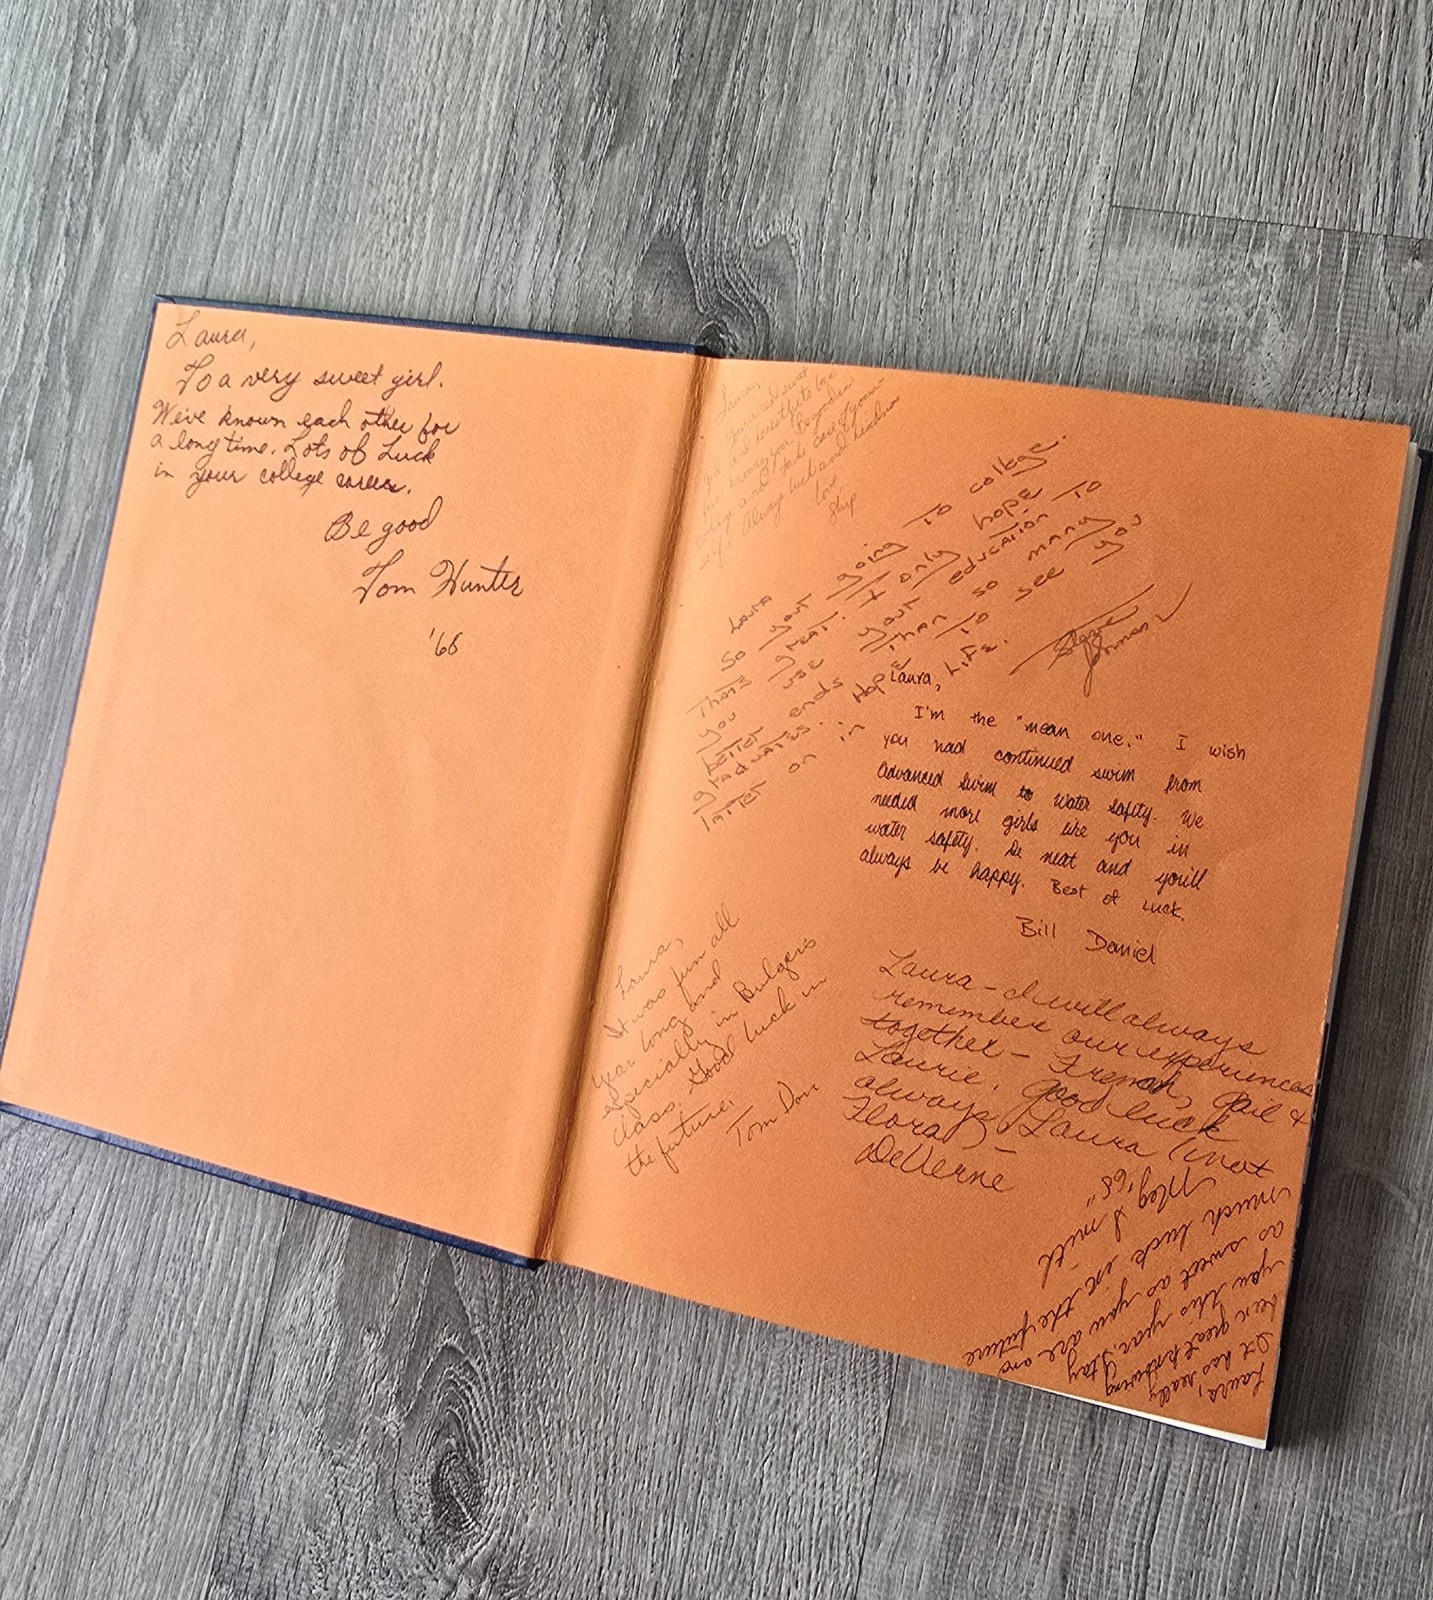 Laura,
To a very sweet girl.
We've known each other for
a long time. Lots of Luck
in your college career.
Be good
Tom Hunter
'66
Laura,
girl
college and take care of your-
self! Always luck and
love
Skip
Laura
So your going to college.
Thats great. I only hope
you use your education to
better ends than so many
graduates. Hope to see you
latter on in Life.
Steve Johnson
Laura,
I'm the "mean one." I wish
you had continued swim from
Advanced Swim to Water Safety. We
needed more girls like you in
water safety. Be neat and you'll
always be happy. Best of Luck.
Bill Daniel
Laura,
It was fun all
year long and
especially in Bulgers
class. Good luck in
the future.
Tom Don
Laura - I will always
remember our experiences
together - French, Gail &
Laurie. Good luck
always, Laura (not
Flora) -
DeVerne
Laura,
It has really
been great knowing
you this year. Stay
as sweet as you are and
much luck in the future
Meg Smith
"68"